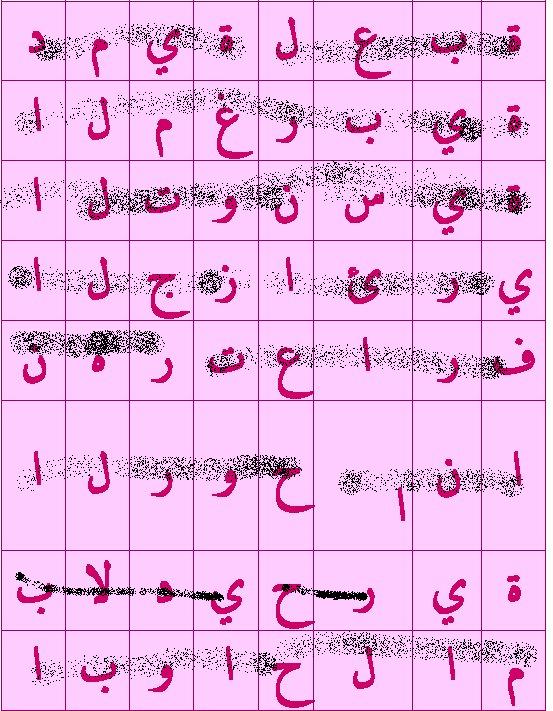 د م ي ة ل ع ب ة
ا ل م غ ر ب ي ة
ا ل ت و ن س ي ة
ا ل ج ز ا ئ ر ي
ن ه ر ت ع ا ر ف
ا ل ر و ح ا ن ا
ب لا د ي ح ر ي ة
ا ب و ا ح ل ا م